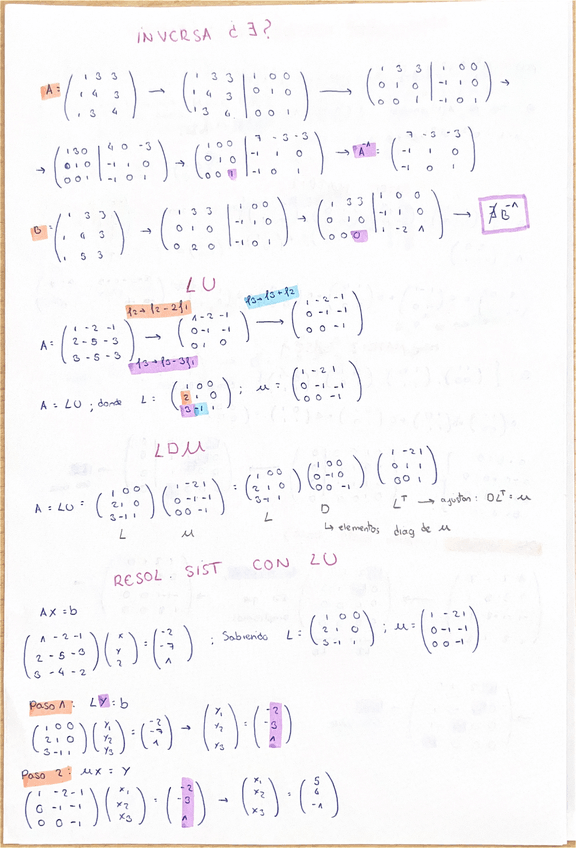 INVERSA ¿∃?
A = (1 3 3; 1 4 3; 1 3 4) → (1 3 3 | 1 0 0; 1 4 3 | 0 1 0; 1 3 4 | 0 0 1) → (1 3 3 | 1 0 0; 0 1 0 | -1 1 0; 0 0 1 | -1 0 1) →
→ (1 3 0 | 4 0 -3; 0 1 0 | -1 1 0; 0 0 1 | -1 0 1) → (1 0 0 | 7 -3 -3; 0 1 0 | -1 1 0; 0 0 1 | -1 0 1) → A⁻¹ = (7 -3 -3; -1 1 0; -1 0 1)
B = (1 3 3; 1 4 3; 1 5 3) → (1 3 3 | 1 0 0; 0 1 0 | -1 1 0; 0 2 0 | -1 0 1) → (1 3 3 | 1 0 0; 0 1 0 | -1 1 0; 0 0 0 | 1 -2 1) → ∄ B⁻¹
LU
f2→f2-2f1
f3→f3+f2
A = (1 -2 -1; 2 -5 -3; 3 -5 -3) → (1 -2 -1; 0 -1 -1; 0 1 0) → (1 -2 -1; 0 -1 -1; 0 0 -1)
f3→f3-3f1
A = LU ; donde L = (1 0 0; 2 1 0; 3 -1 1) ; U = (1 -2 1; 0 -1 -1; 0 0 -1)
LDU
A = LU = (1 0 0; 2 1 0; 3 -1 1) (1 -2 1; 0 -1 -1; 0 0 -1) = (1 0 0; 2 1 0; 3 -1 1) (1 0 0; 0 -1 0; 0 0 -1) (1 -2 1; 0 1 1; 0 0 1)
L U L D Lᵀ → ajustan: DLᵀ = U
↳ elementos diag de U
RESOL. SIST CON LU
Ax = b
(1 -2 -1; 2 -5 -3; 3 -4 -2) (x; y; z) = (-2; -7; 1) ; Sabiendo L = (1 0 0; 2 1 0; 3 -1 1) ; U = (1 -2 1; 0 -1 -1; 0 0 -1)
Paso 1: LY = b
(1 0 0; 2 1 0; 3 -1 1) (y1; y2; y3) = (-2; -7; 1) → (y1; y2; y3) = (-2; -3; 1)
Paso 2: UX = Y
(1 -2 -1; 0 -1 -1; 0 0 -1) (x1; x2; x3) = (-2; -3; 1) → (x1; x2; x3) = (5; 4; -1)